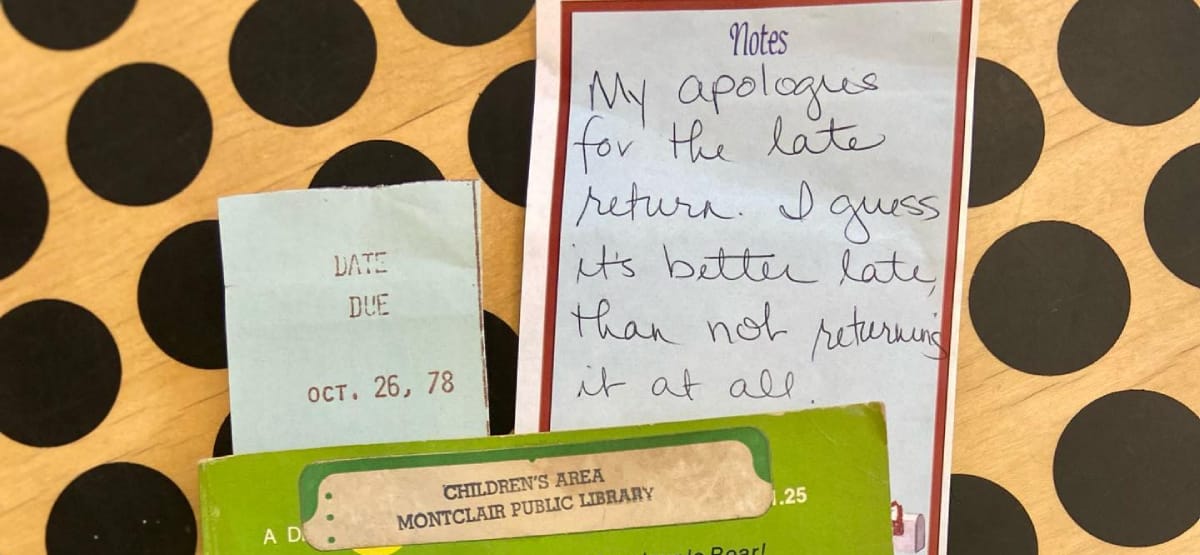 Notes
My apologies
for the late
return. I guess
it's better late,
than not returning
it at all.
DATE
DUE
OCT. 26, 78
CHILDREN'S AREA
MONTCLAIR PUBLIC LIBRARY
A D
.25
Roar!